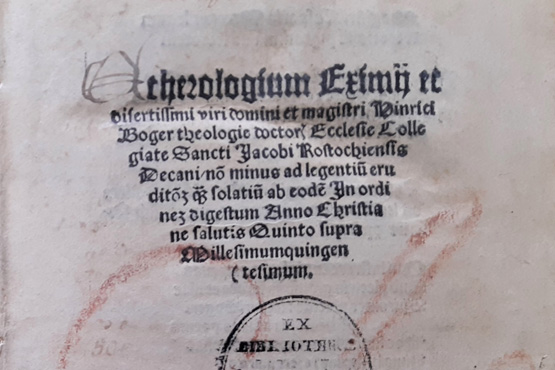 Etherologium Eximij et
disertissimi viri domini et magistri Hinrici
Boger theologie doctorꝭ Ecclesie Colle
giate Sancti Jacobi Rostochiensis
Decani nõ minus ad legentiũ eru
ditõꝫ ꝙ̃ solatiũ ab eodẽ In ordi
neꝫ digestum Anno Christia
ne salutis Quinto supra
Millesimumquingen
(tesimum.
EX
BIBLIOTHE